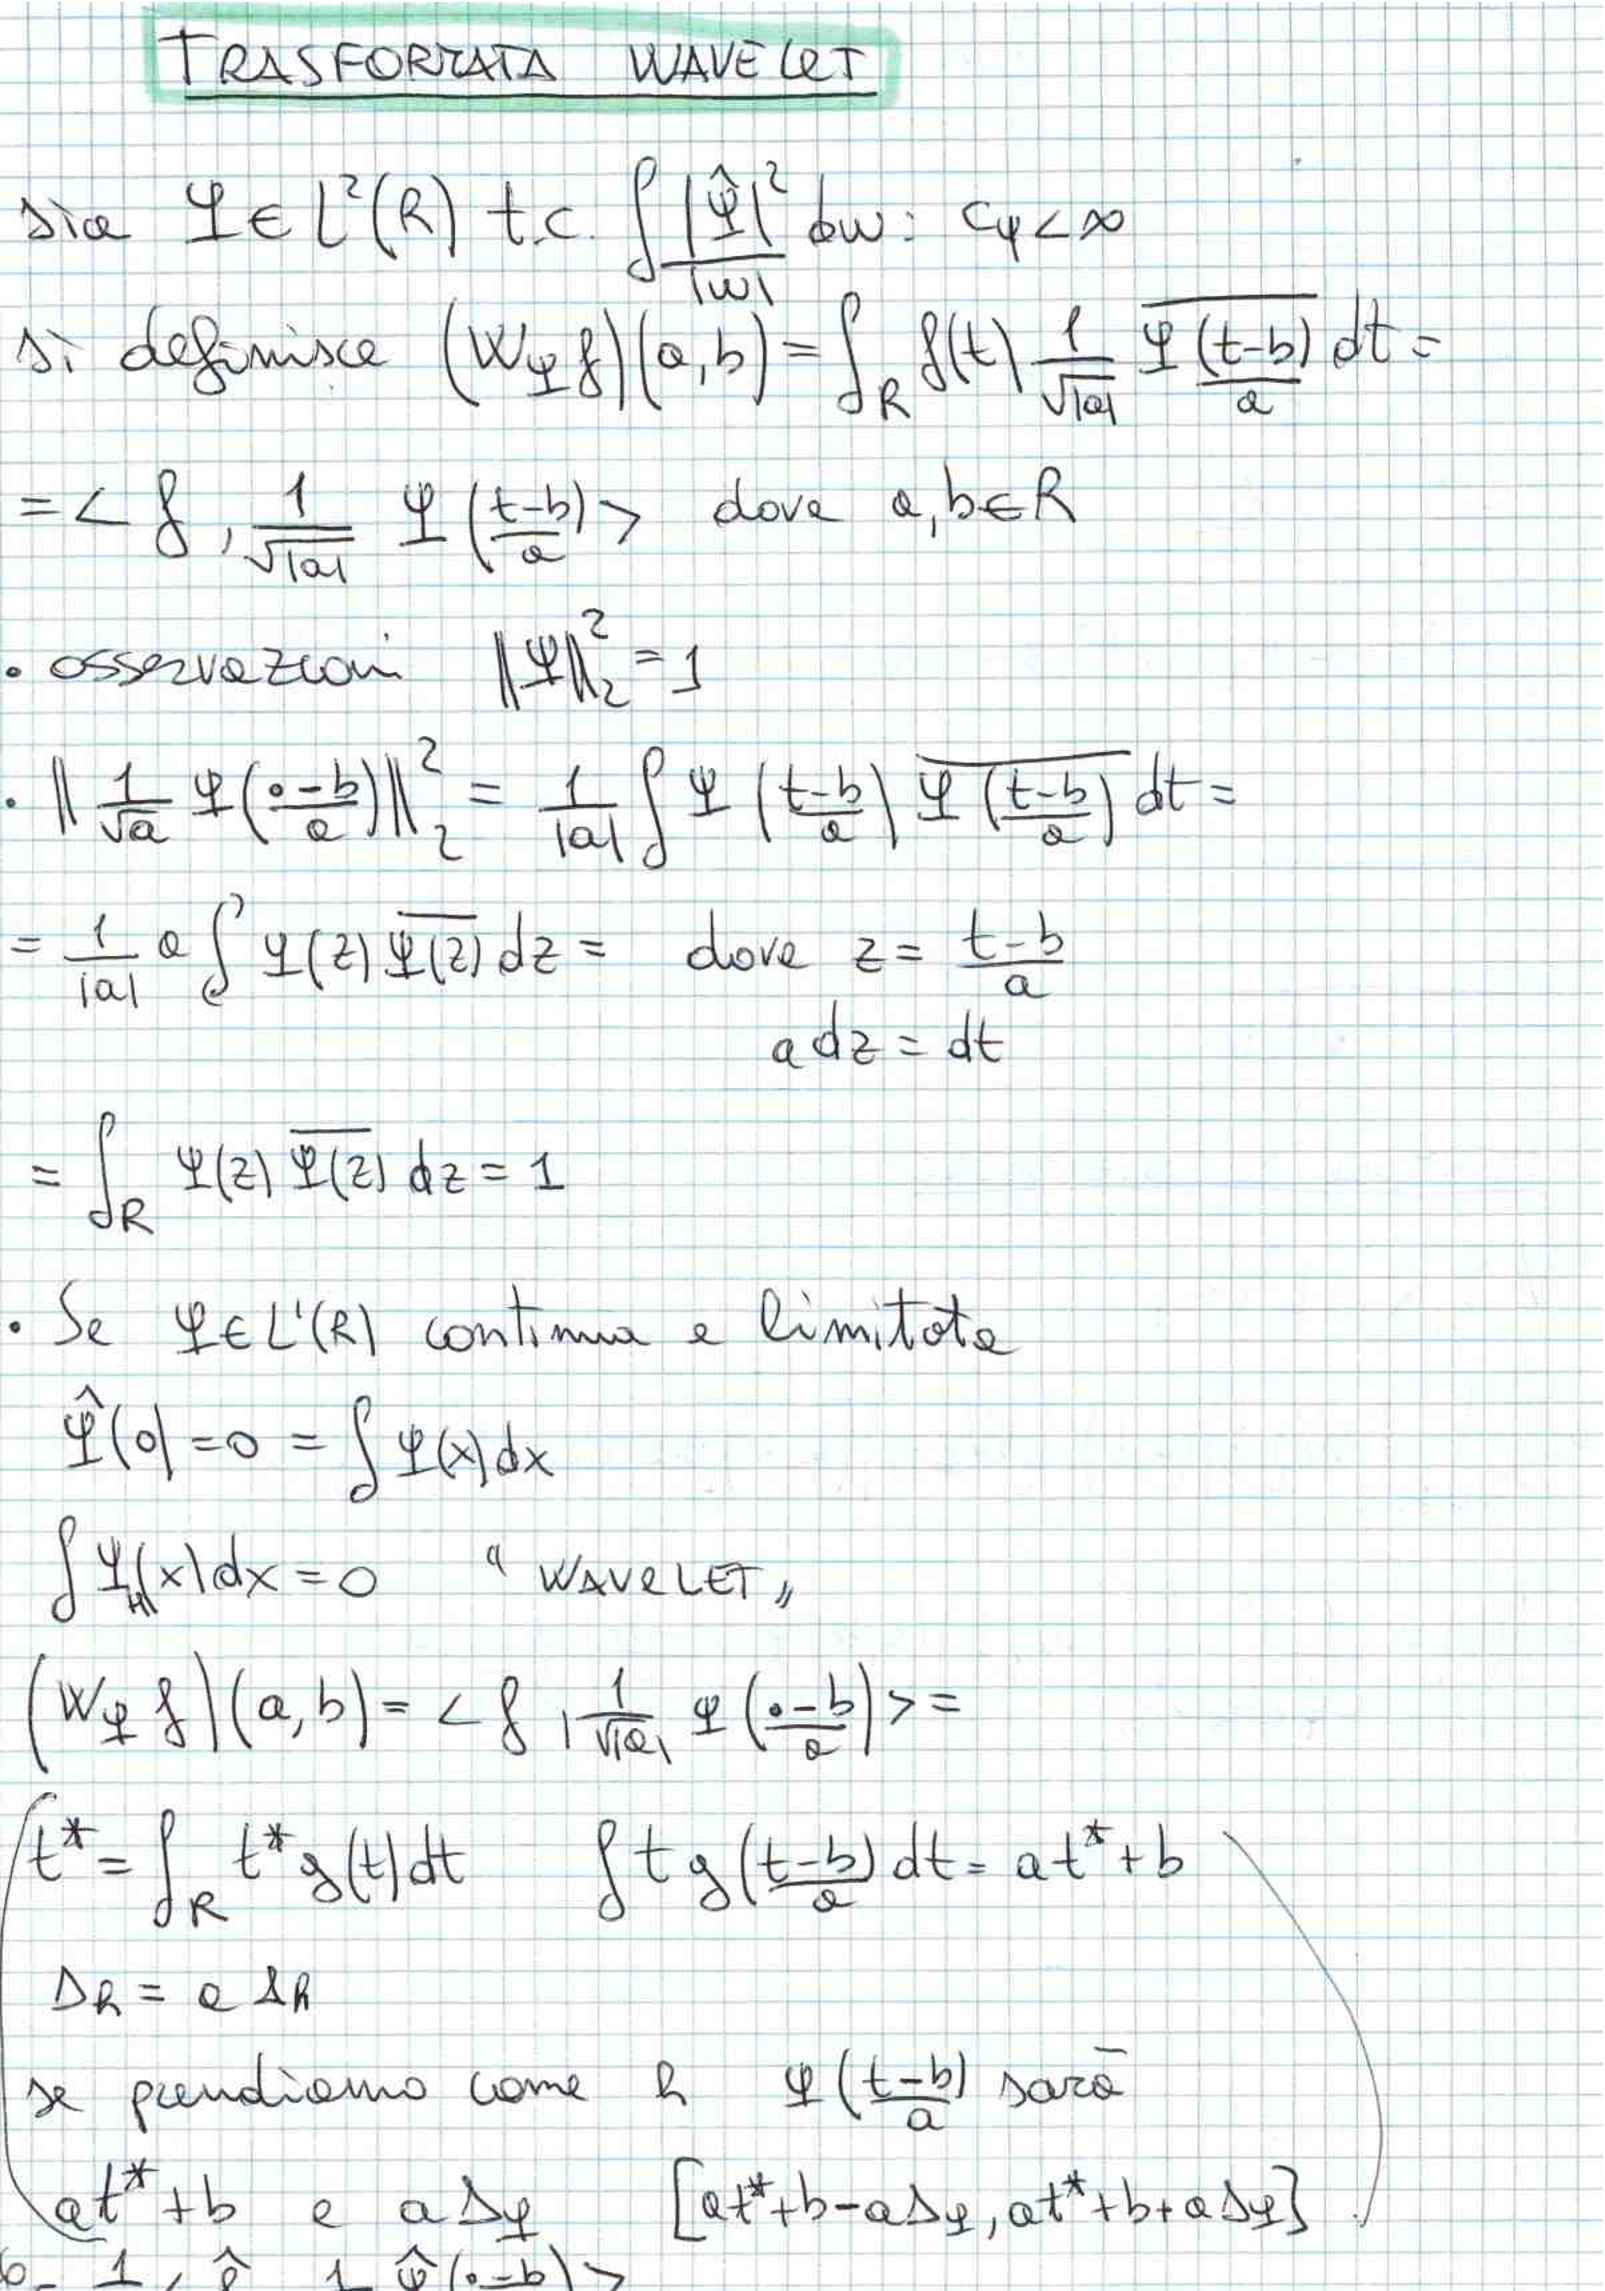 TRASFORMATA WAVELET
sia Ψ ∈ L²(R) t.c. ∫ |Ψ̂|²/|w| dw: cψ < ∞
si definisce (W_Ψ f)(a,b) = ∫_R f(t) 1/√|a| \overline{Ψ((t-b)/a)} dt =
= < f, 1/√|a| Ψ((t-b)/a) > dove a,b ∈ R
• osservazioni ‖Ψ‖₂² = 1
• ‖ 1/√a Ψ((•-b)/a) ‖₂² = 1/|a| ∫ Ψ((t-b)/a) \overline{Ψ((t-b)/a)} dt =
= 1/|a| a ∫ Ψ(z) \overline{Ψ(z)} dz = dove z = (t-b)/a
a dz = dt
= ∫_R Ψ(z) \overline{Ψ(z)} dz = 1
• Se Ψ ∈ L¹(R) continua e limitata
Ψ̂(0) = 0 = ∫ Ψ(x) dx
∫ Ψ_H(x) dx = 0 " WAVELET „
(W_Ψ f)(a,b) = < f, 1/√|a| Ψ((•-b)/a) > =
t* = ∫_R t* g(t) dt ∫ t g((t-b)/a) dt = at* + b
Δh = a Δh
se prendiamo come h Ψ((t-b)/a) sarà
at* + b e a Δψ [at* + b - a Δψ, at* + b + a Δψ]